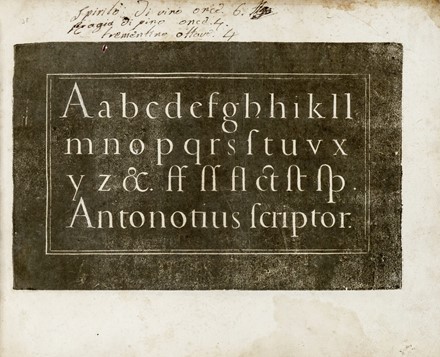 Spirito di vino once. 6.
Ragia di pino once. 4.
trementina ottave. 4
A a b c d e f g h h i k l l
m n o p q r s ſ t u v x
y z &. ﬀ ſſ ſl ct ſt ſp.
Antonotius ſcriptor.